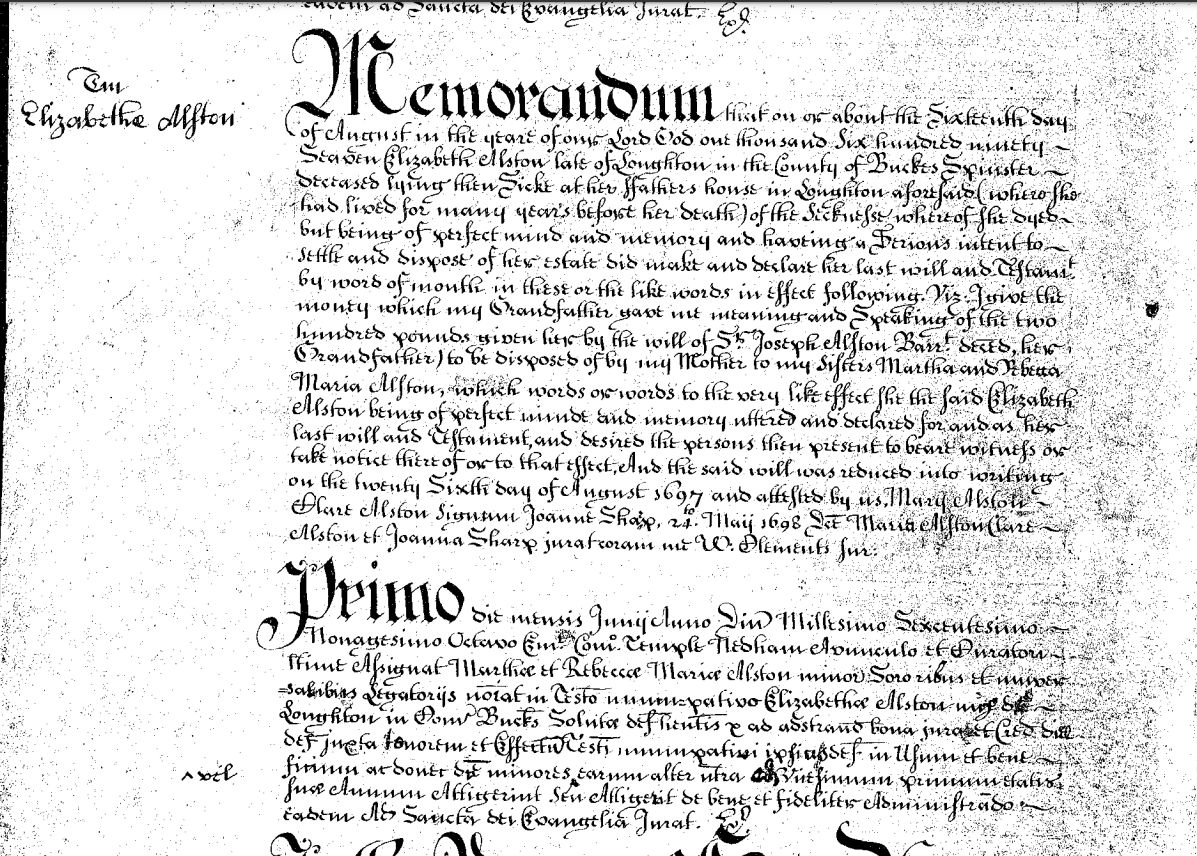 eadem ad Sancta dei Evangelia Jurat. Exd.
Tm
Elizabethæ Alston
Memorandum that on or about the Sixteenth day
of August in the yeare of our Lord God one thousand Six hundred ninety
Seaven Elizabeth Alston late of Loughton in the County of Buckes Spinster
deceased lying then Sicke at her ffathers house in Loughton aforesaid (where she
had lived for many years before her death) of the sicknesse whereof she dyed
but being of perfect mind and memory and haveing a Serious intent to
settle and dispose of her estate did make and declare her last will and Testamt.
by word of mouth in these or the like words in effect following. Viz. I give the
money which my Grandfather gave me meaning and Speaking of the two
hundred pounds given her by the will of Sr. Joseph Alston Barrt. deced, her
Grandfather) to be disposed of by my Mother to my Sisters Martha and Rebecca
Maria Alston, which words or words to the very like effect she the said Elizabeth
Alston being of perfect minde and memory uttered and declared for and as her
last will and Testament, and desired the persons then present to beare witness or
take notice thereof or to that effect, And the said will was reduced into writing
on the twenty Sixth day of August 1697 and attested by us, Mary Alston
Clare Alston Signum Joannæ Sharp, 24to. Maij 1698 Dcæ Maria Alston Clare
Alston et Joanna Sharp jurat coram me W. Clements Sur.
Primo die mensis Junij Anno Dni Millesimo Sexcentesimo
Nonagesimo Octavo Emt. Como. Temple Nedham Avunculo et Curatori
ltime Assignat Marthæ et Rebeccæ Mariæ Alston minor Sororibus et univer
salibus Legatorijs noiat in Testo nuncupativo Elizabethæ Alston nup de
Loughton in Com Bucks Solutæ def hentis &c ad adstrand bona jura et Cred dict
def juxta tenorem et Effectu Testi nuncupativi ipsius def in Usum et bene
^ vel
ficium ac donec dce minores earum alter ultra Vicesimum primum etatis
suæ Annum Attigerint Seu Attigerit de bene et fideliter Administrando
eadem Ad Sancta dei Evangelia Jurat. Exd.